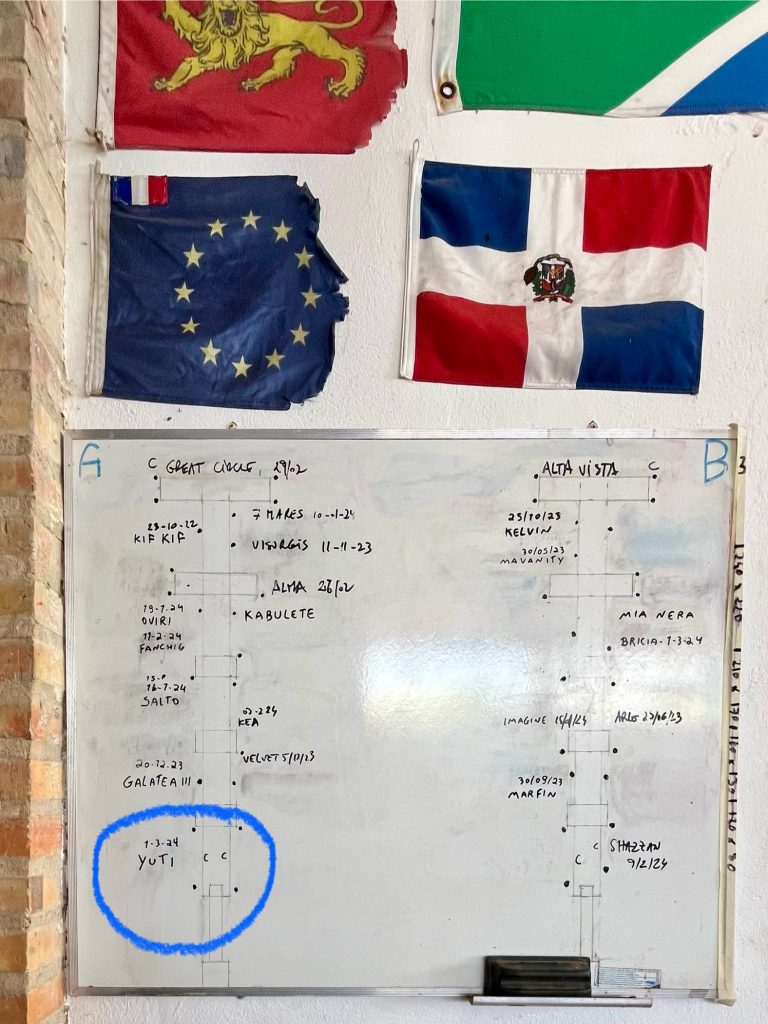 A
C GREAT CIRCLE. 29/02
7 MARES 10-01-24
23-10-22
KIF KIF
VISURGIS 11-11-23
ALMA 26/02
19-1-24
OVIRI
KABULETE
11-2-24
FANCHIG
16-1-24
SALTO
KEA
VELVET 5/12/23
20-12-23
GALATEA III
1-3-24
YUTI
C C
B
ALTA VISTA C
25/10/23
KELVIN
30/05/23
MAVANITY
MIA NERA
BRICIA-1-3-24
IMAGINE
30/09/23
MARFIN
C
C
SHAZZAN
9/2/24
3